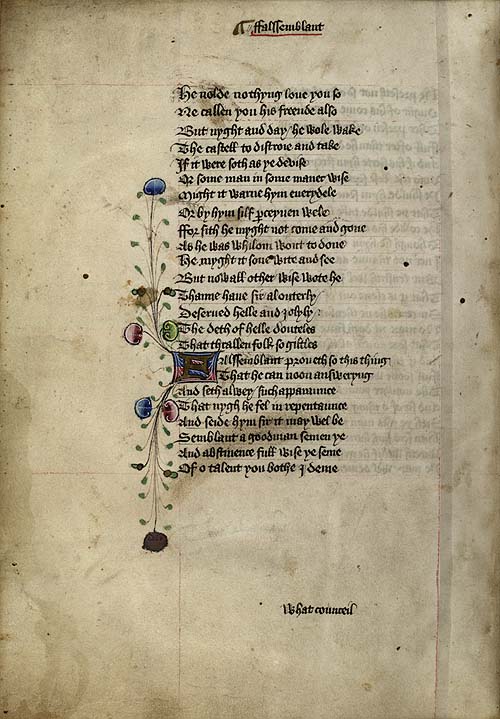 ffalssemblant
He nolde nothyng love you so
Ne callen you his freende also
But nyght and day he wole wake
The castell to distroie and take
If it were soth as ye devise
Or some man in some maner wise
Might it warne hym everydele
Or by hym silf pceyuen wele
ffor sith he myght not come and gone
As he was whilom wont to done
He myght it sone wite and see
But now all other wise wote he
Thanne have sir al outerly
Deserved helle and jolyly
The deth of helle douteles
That thrallen folk so giltles
Falssemblant proveth so this thing
That he can noon answeryng
And seth alwey such apparaunce
That nygh he fel in repentaunce
And seide hym sir it may wel be
Semblant a goodman semen ye
And abstinence full wise ye seme
Of o talent you bothe I deme
What counceil